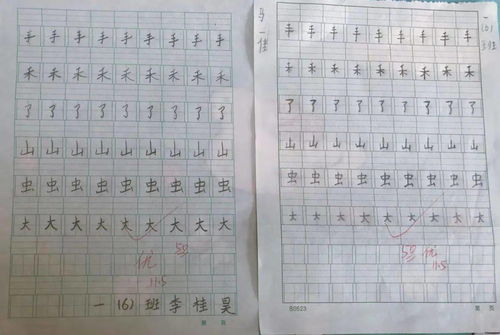 手手手手手手手手手
禾禾禾禾禾禾禾禾禾
了了了了了了了了了
山山山山山山山山山
虫虫虫虫虫虫虫虫虫
大大大大大大大大大
优
11.5
一(6)班李桂昊
第 页
一佳
一(6)
手手手手手手手手手
禾禾禾禾禾禾禾禾禾
了了了了了了了了了
山山山山山山山山山
虫虫虫虫虫虫虫虫虫
大大大大大大大大大
优
11.5
B0523 第 页